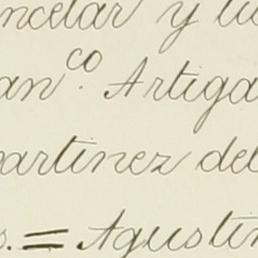 ncelar y tu
an.co Artiga
artinez del
s. = Agustin